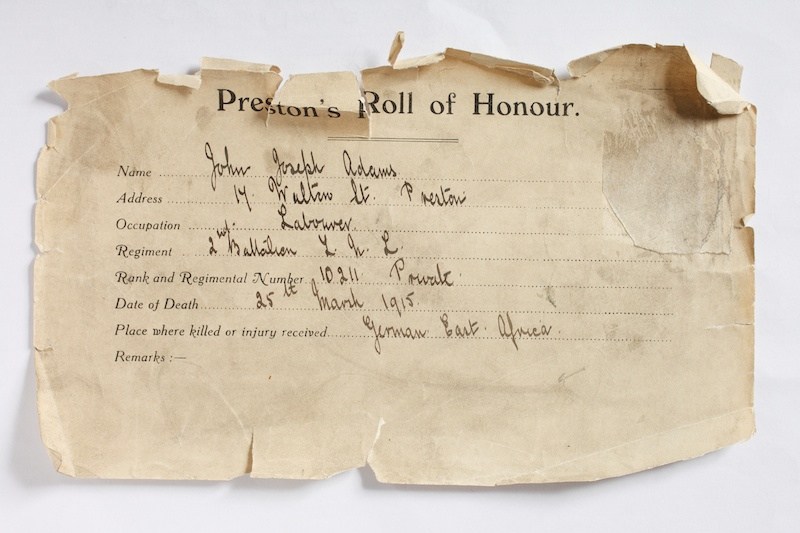 Preston's Roll of Honour.
Name John Joseph Adams
Address 17 Walton St. Preston
Occupation Labourer
Regiment 2nd Battalion L N L
Rank and Regimental Number 10211 Private
Date of Death 25th March 1915
Place where killed or injury received German East Africa
Remarks :—